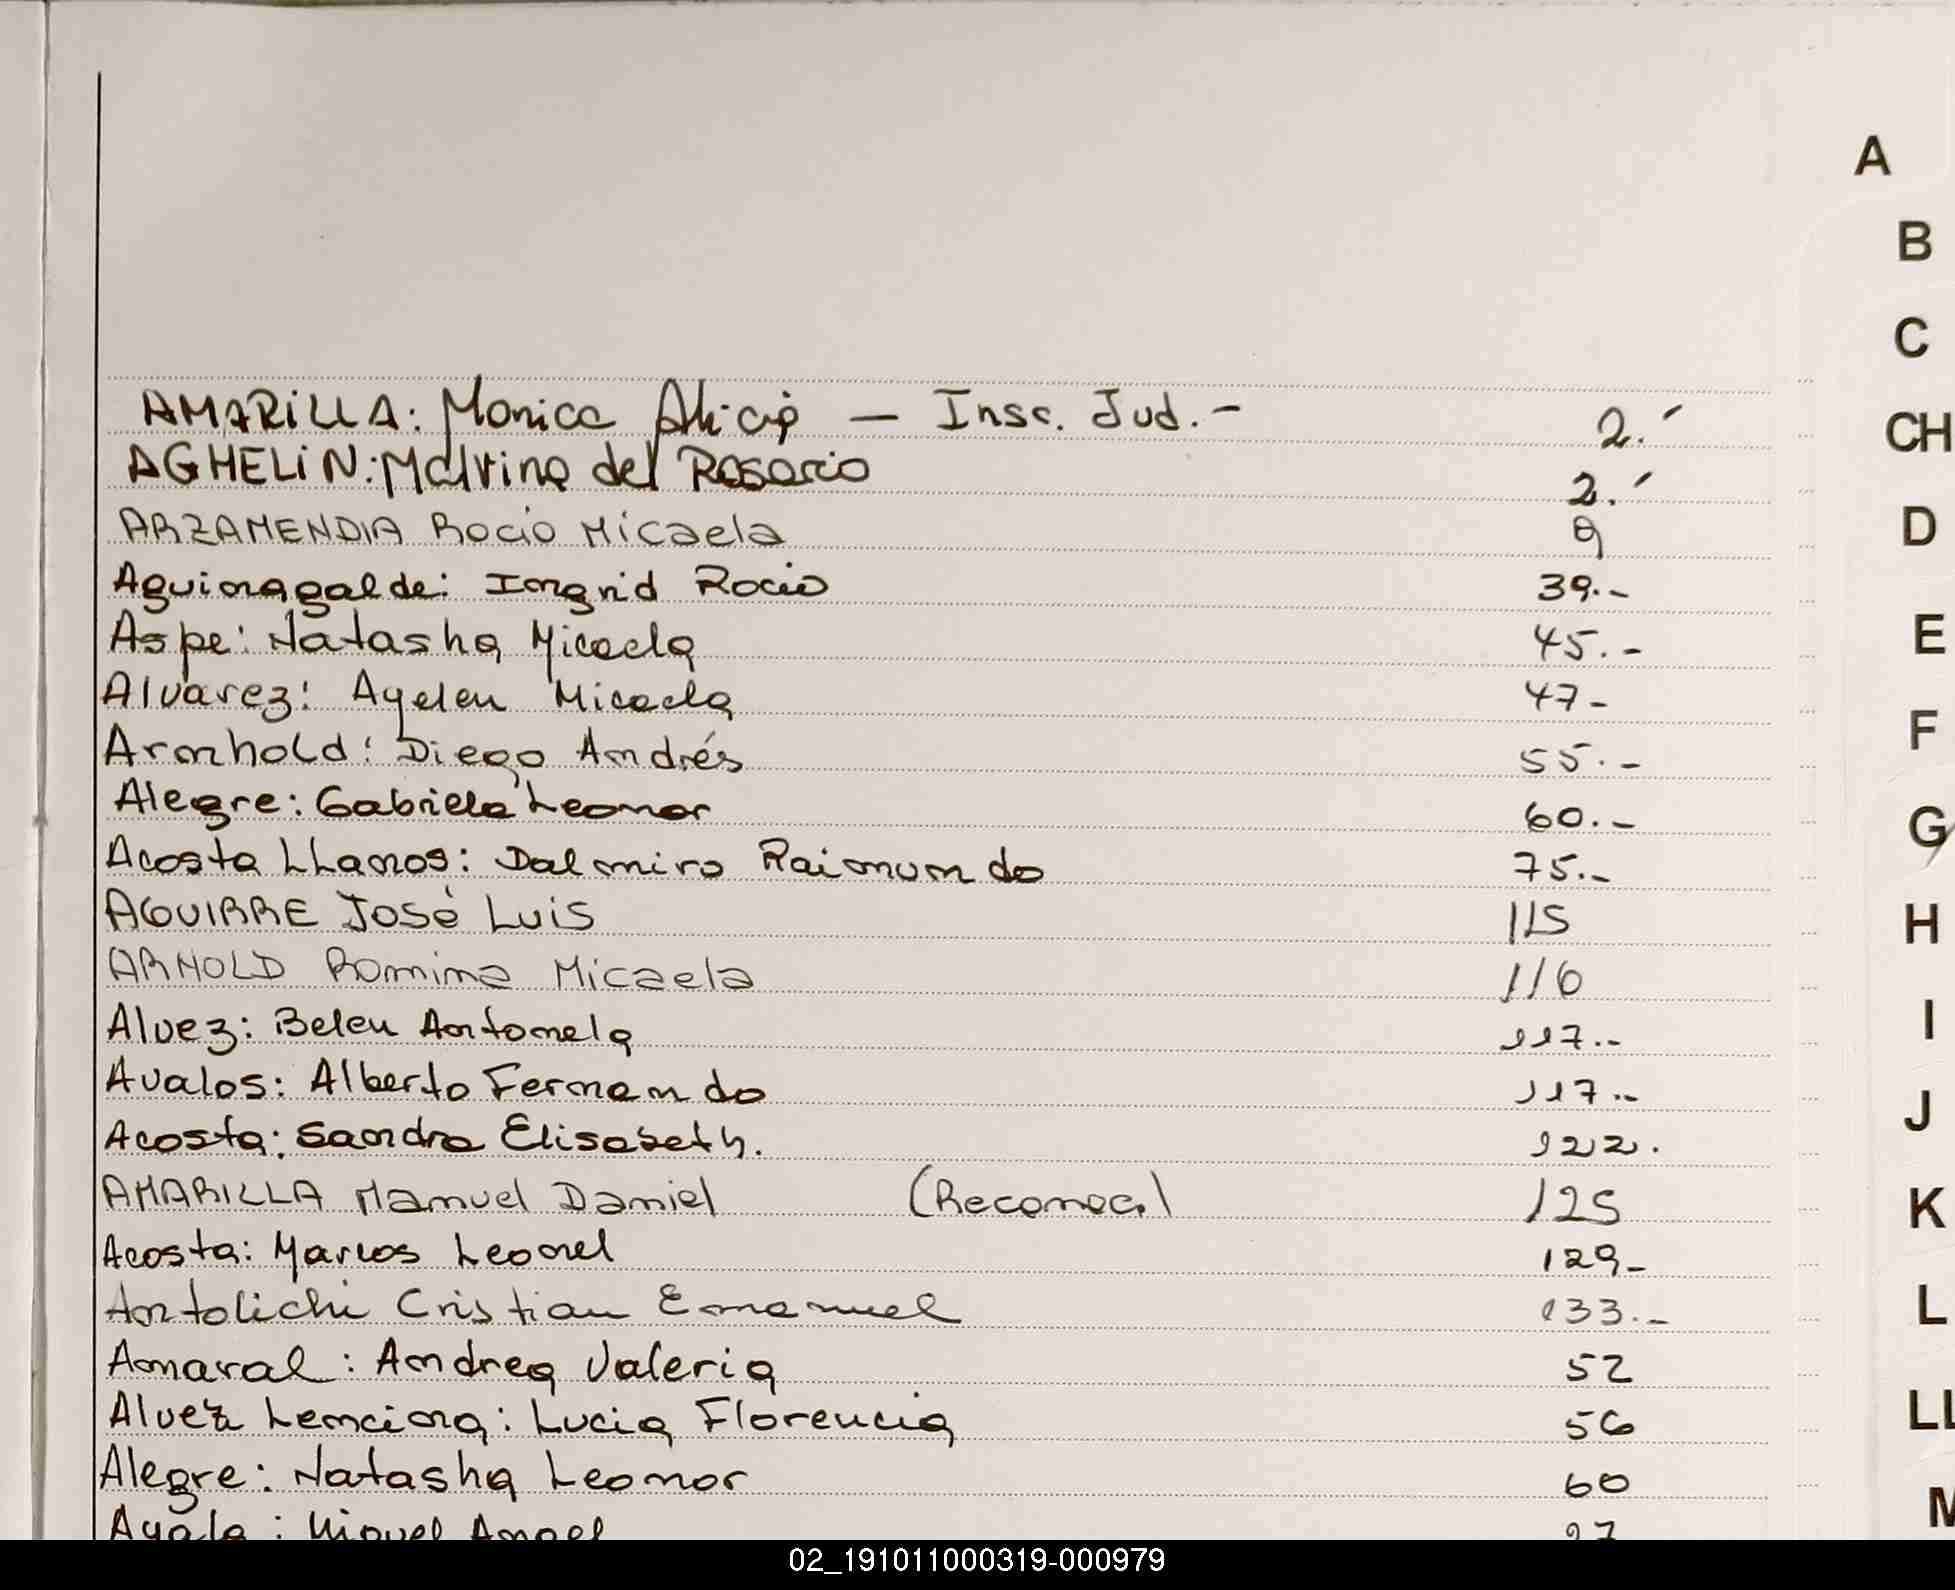 AMARILLA: Monica Alicia — Insc. Jud.- 2.-
AGHELIN: Malvina del Rosario 2.-
ARZAMENDIA Rocio Micaela 9
Aguinagalde: Ingrid Rocio 39.-
Aspe: Natasha Micaela 45.-
Alvarez: Ayelen Micaela 47-
Arnhold: Diego Andrés 55.-
Alegre: Gabriela Leonor 60.-
Acosta LLanos: Dalmiro Raimundo 75.-
AGUIRRE José Luis 115
ARNOLD Romina Micaela 116
Alvez: Belen Antonela 117.-
Avalos: Alberto Fernando 117.-
Acosta: Sandra Elisabeth. 122.
AMARILLA Manuel Daniel (Reconoc.) 125
Acosta: Marcos Leonel 129-
Antolichi Cristian Emanuel 133.-
Amaral: Andrea Valeria 52
Alvez Lenciona: Lucia Florencia 56
Alegre: Natasha Leonor 60
Ayala: Miguel Angel
A
B
C
CH
D
E
F
G
H
I
J
K
L
LL
M
02_191011000319-000979